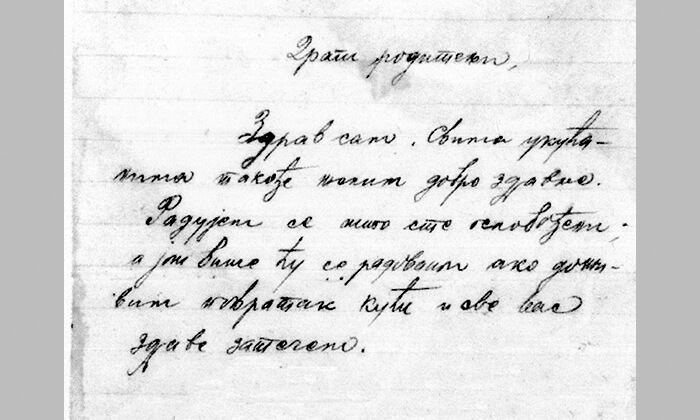 Драги родитељи,
Здрав сам. Свима укућа-
нима такође желим добро здравље.
Радујем се што сте ослобођени,
а још више ћу се радовати ако дожи-
вим повратак кући и све вас
здраве затечем.